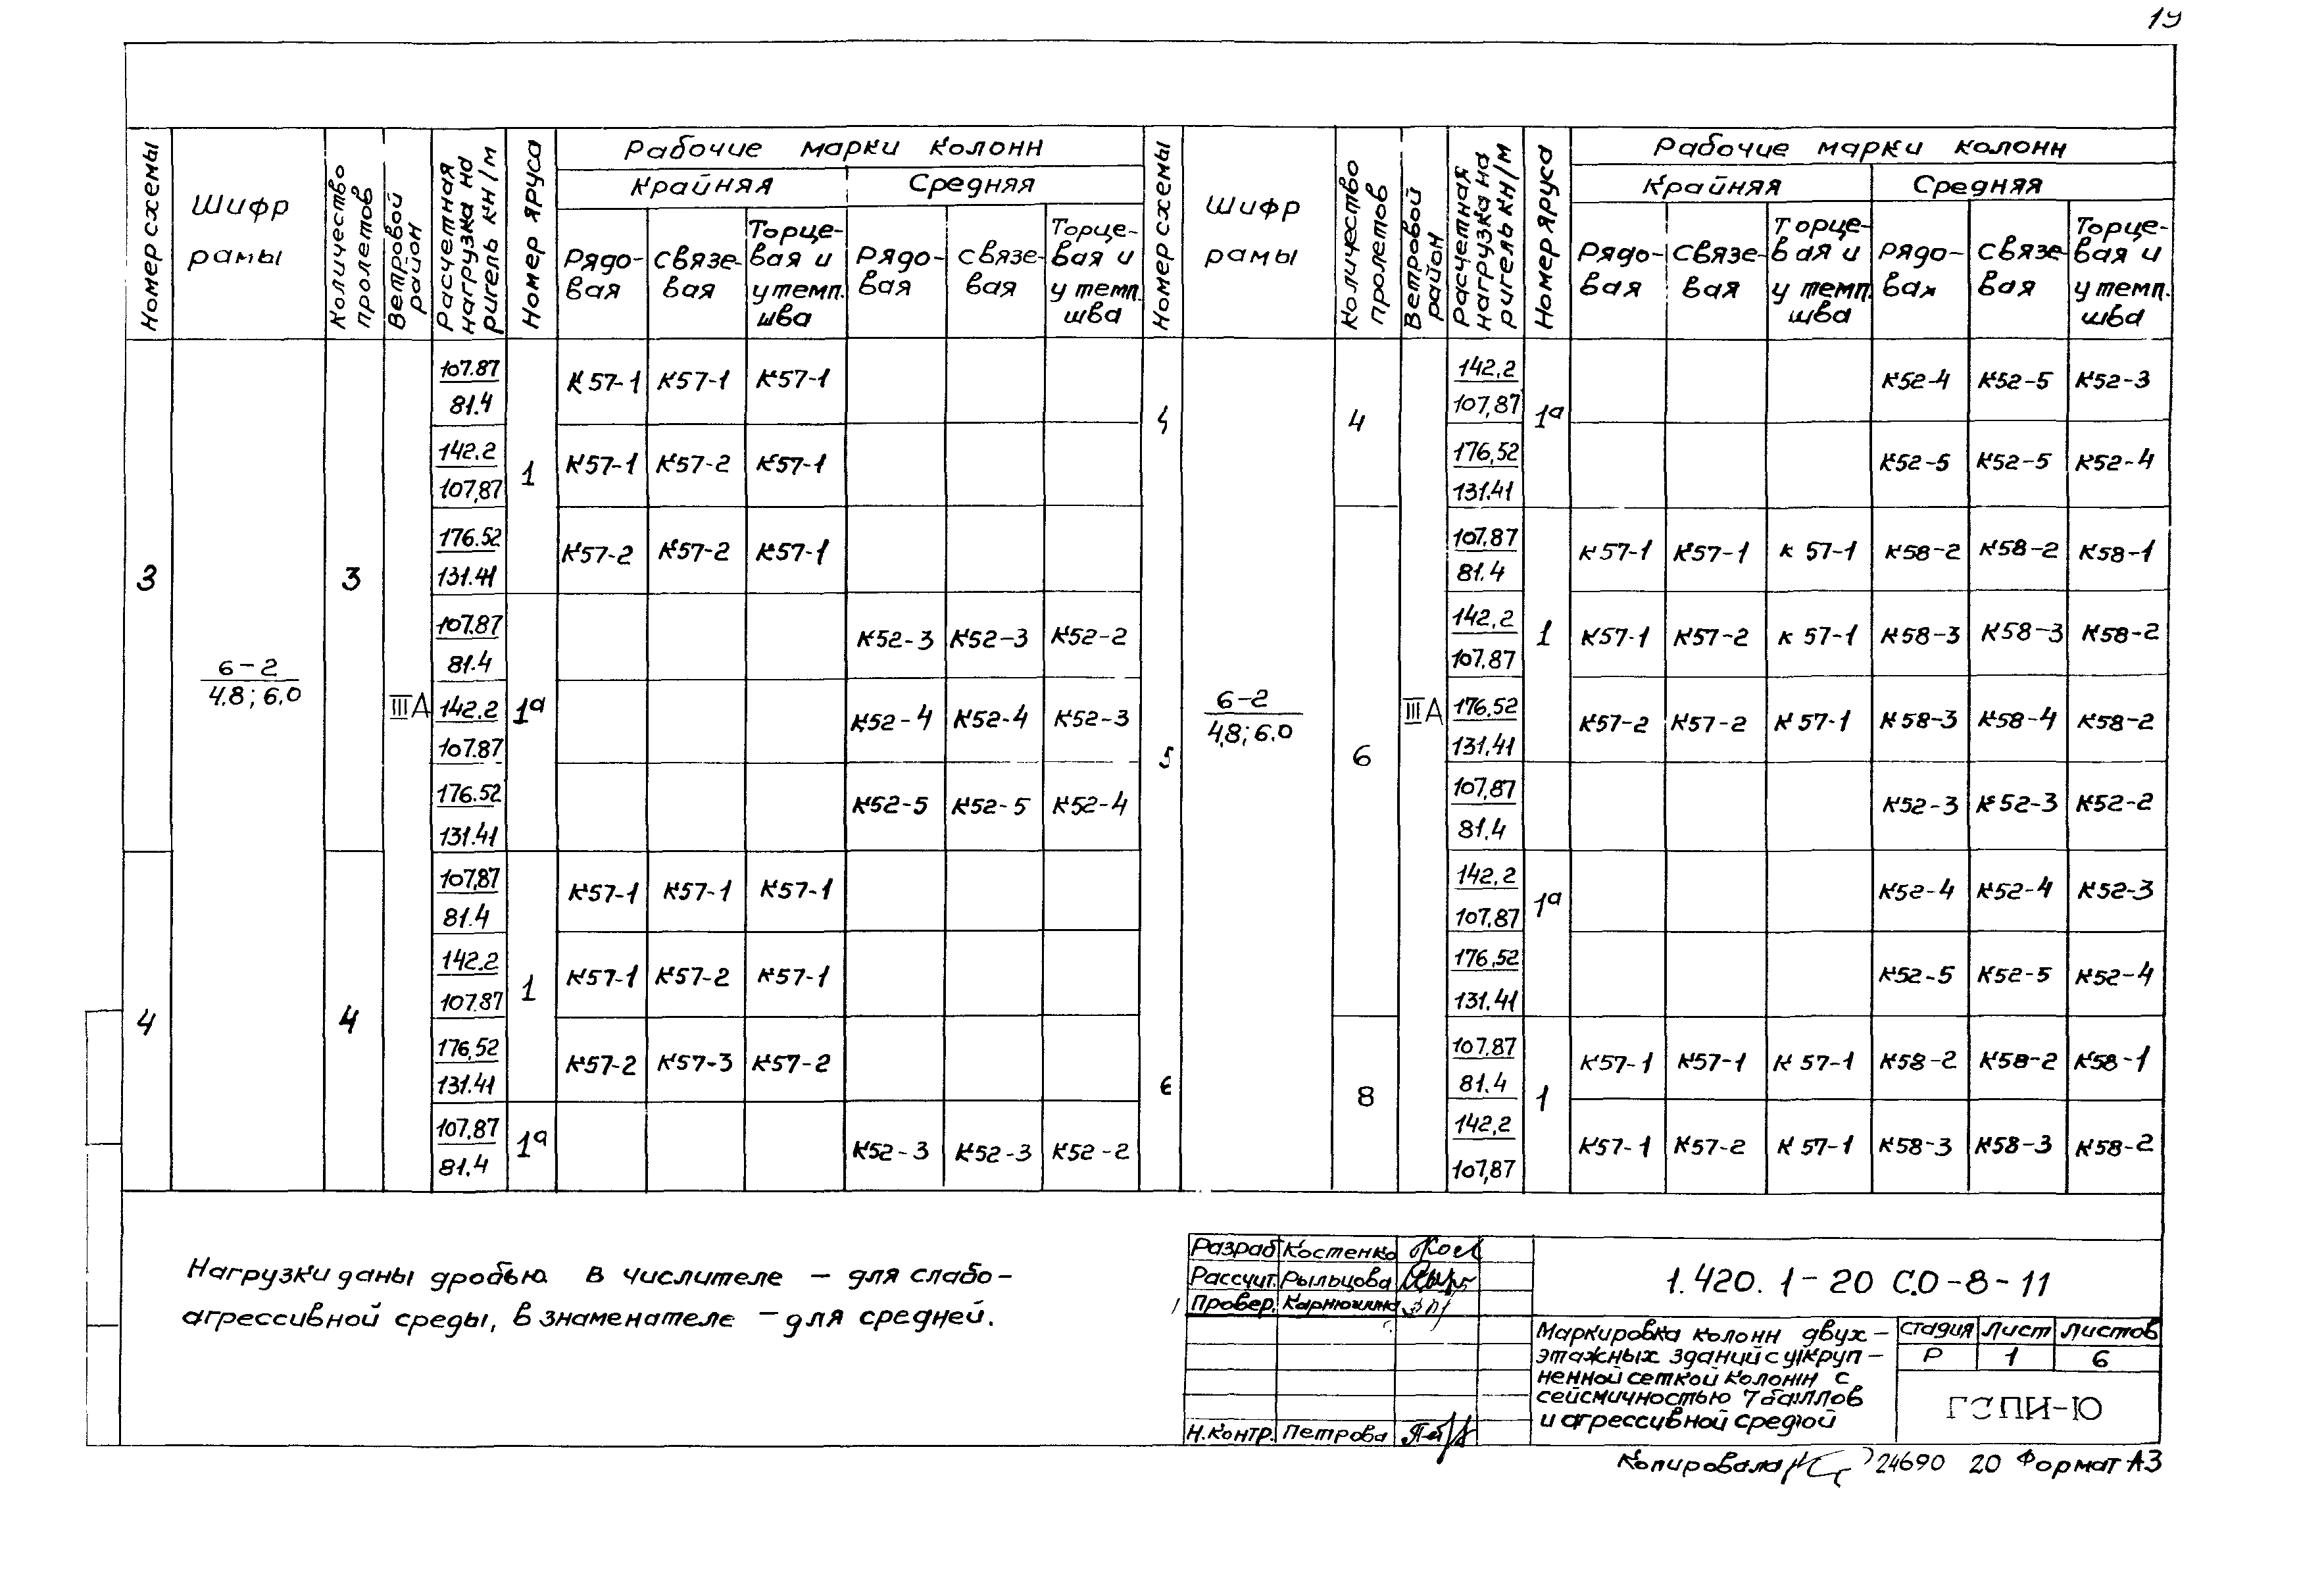 19
Номер схемы
Шифр рамы
Количество пролетов
Ветровой район
Расчетная нагрузка на ригель кн/м
Номер яруса
Рабочие марки колонн
Крайняя Средняя
Рядовая связевая Торцевая и у темп. шва Рядовая связевая Торцевая и у темп. шва
3 6-2 / 4,8; 6,0 3 IIIА
107.87 / 81.4 1 К57-1 К57-1 К57-1
142.2 / 107,87 К57-1 К57-2 К57-1
176.52 / 131.41 К57-2 К57-2 К57-1
107.87 / 81.4 1а К52-3 К52-3 К52-2
142.2 / 107.87 К52-4 К52-4 К52-3
176.52 / 131.41 К52-5 К52-5 К52-4
4 4
107,87 / 81.4 1 К57-1 К57-1 К57-1
142.2 / 107.87 К57-1 К57-2 К57-1
176,52 / 131.41 К57-2 К57-3 К57-2
107,87 / 81.4 1а К52-3 К52-3 К52-2
Номер схемы
Шифр рамы
Количество пролетов
Ветровой район
Расчетная нагрузка на ригель кн/м
Номер яруса
Рабочие марки колонн
Крайняя Средняя
Рядовая связевая Торцевая и у темп. шва рядовая связевая Торцевая и у темп. шва
4 6-2 / 4,8; 6.0 4 IIIА
142,2 / 107,87 1а К52-4 К52-5 К52-3
176,52 / 131.41 К52-5 К52-5 К52-4
5 6
107.87 / 81.4 1 К57-1 К57-1 К57-1 К58-2 К58-2 К58-1
142,2 / 107.87 К57-1 К57-2 К57-1 К58-3 К58-3 К58-2
176,52 / 131.41 К57-2 К57-2 К57-1 К58-3 К58-4 К58-2
107,87 / 81.4 1а К52-3 К52-3 К52-2
142,2 / 107,87 К52-4 К52-4 К52-3
176,52 / 131.41 К52-5 К52-5 К52-4
6 8
107.87 / 81.4 1 К57-1 К57-1 К57-1 К58-2 К58-2 К58-1
142,2 / 107,87 К57-1 К57-2 К57-1 К58-3 К58-3 К58-2
Нагрузки даны дробью. В числителе – для слабо-
агрессивной среды, в знаменателе – для средней.
Разраб Костенко
Рассчит. Рыльцова
Провер. Карнюшина
Н.контр. Петрова
1.420.1-20 С.0-8-11
Маркировка колонн двух-
этажных зданий с укруп-
ненной сеткой колонн с
сейсмичностью 7 баллов
и агрессивной средой
стадия лист листов
Р 1 6
ГСПИ-10
Копировала 24690 20 Формат А3